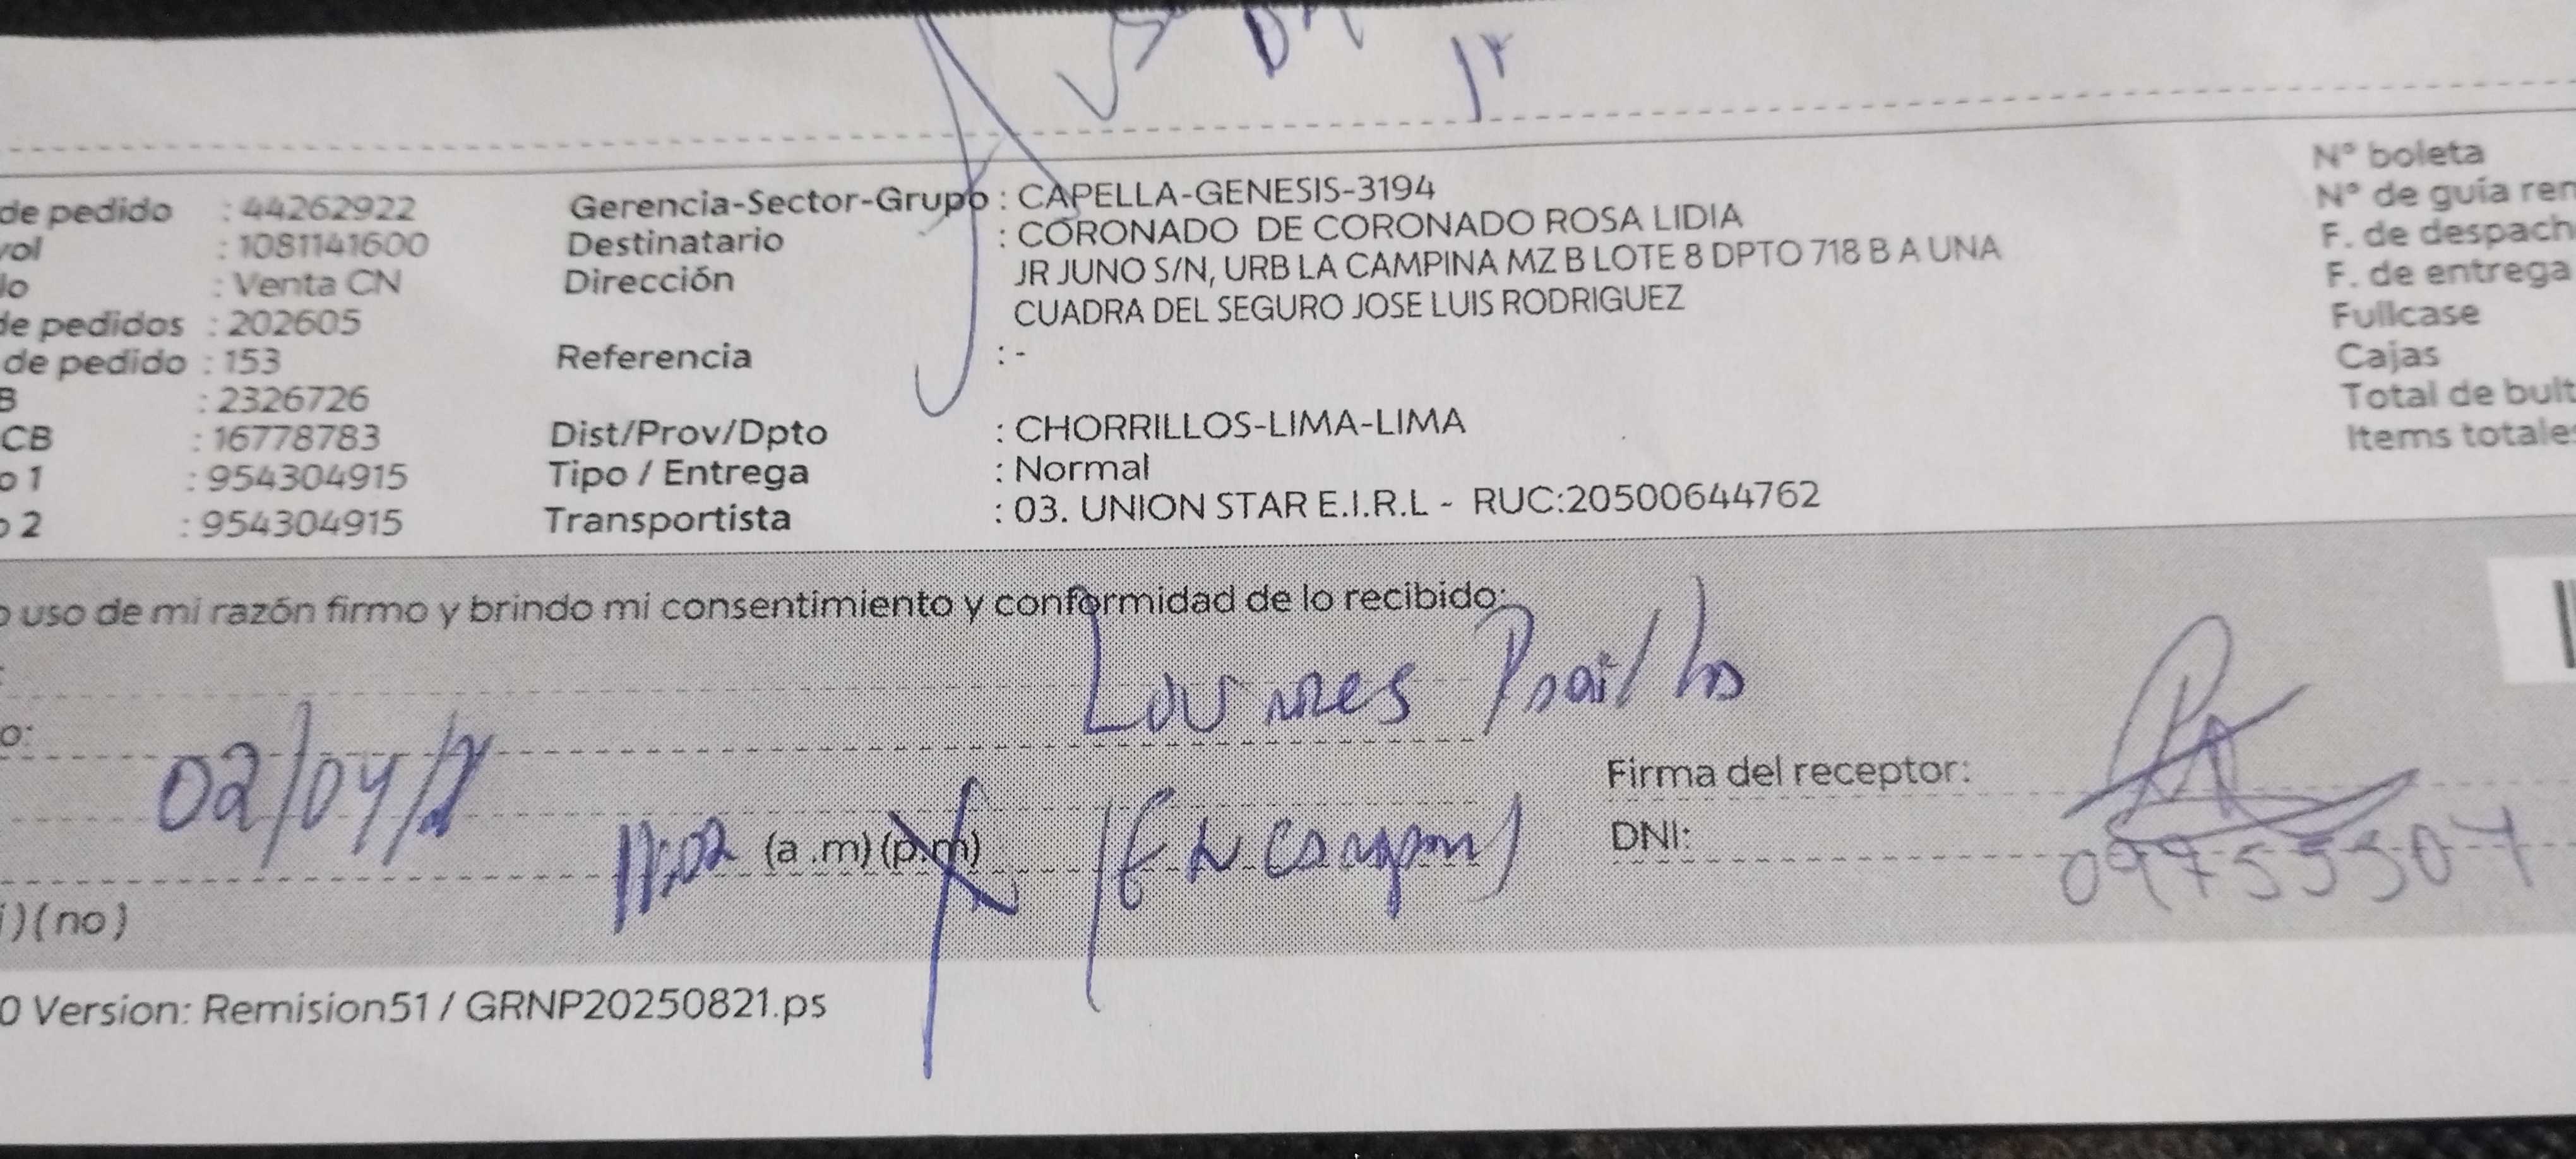 de pedido : 44262922
vol : 1081141600
lo : Venta CN
de pedidos : 202605
de pedido : 153
B : 2326726
CB : 16778783
o 1 : 954304915
o 2 : 954304915
Gerencia-Sector-Grupo : CAPELLA-GENESIS-3194
Destinatario : CORONADO DE CORONADO ROSA LIDIA
Dirección JR JUNO S/N, URB LA CAMPINA MZ B LOTE 8 DPTO 718 B A UNA
CUADRA DEL SEGURO JOSE LUIS RODRIGUEZ
Referencia : -
Dist/Prov/Dpto : CHORRILLOS-LIMA-LIMA
Tipo / Entrega : Normal
Transportista : 03. UNION STAR E.I.R.L - RUC:20500644762
N° boleta
N° de guía ren
F. de despach
F. de entrega
Fullcase
Cajas
Total de bult
Items totales
o uso de mi razón firmo y brindo mi consentimiento y conformidad de lo recibido:
o:
02/04/
(a .m) (p.m)
Firma del receptor:
DNI:
i) ( no )
0 Version: Remision51 / GRNP20250821.ps